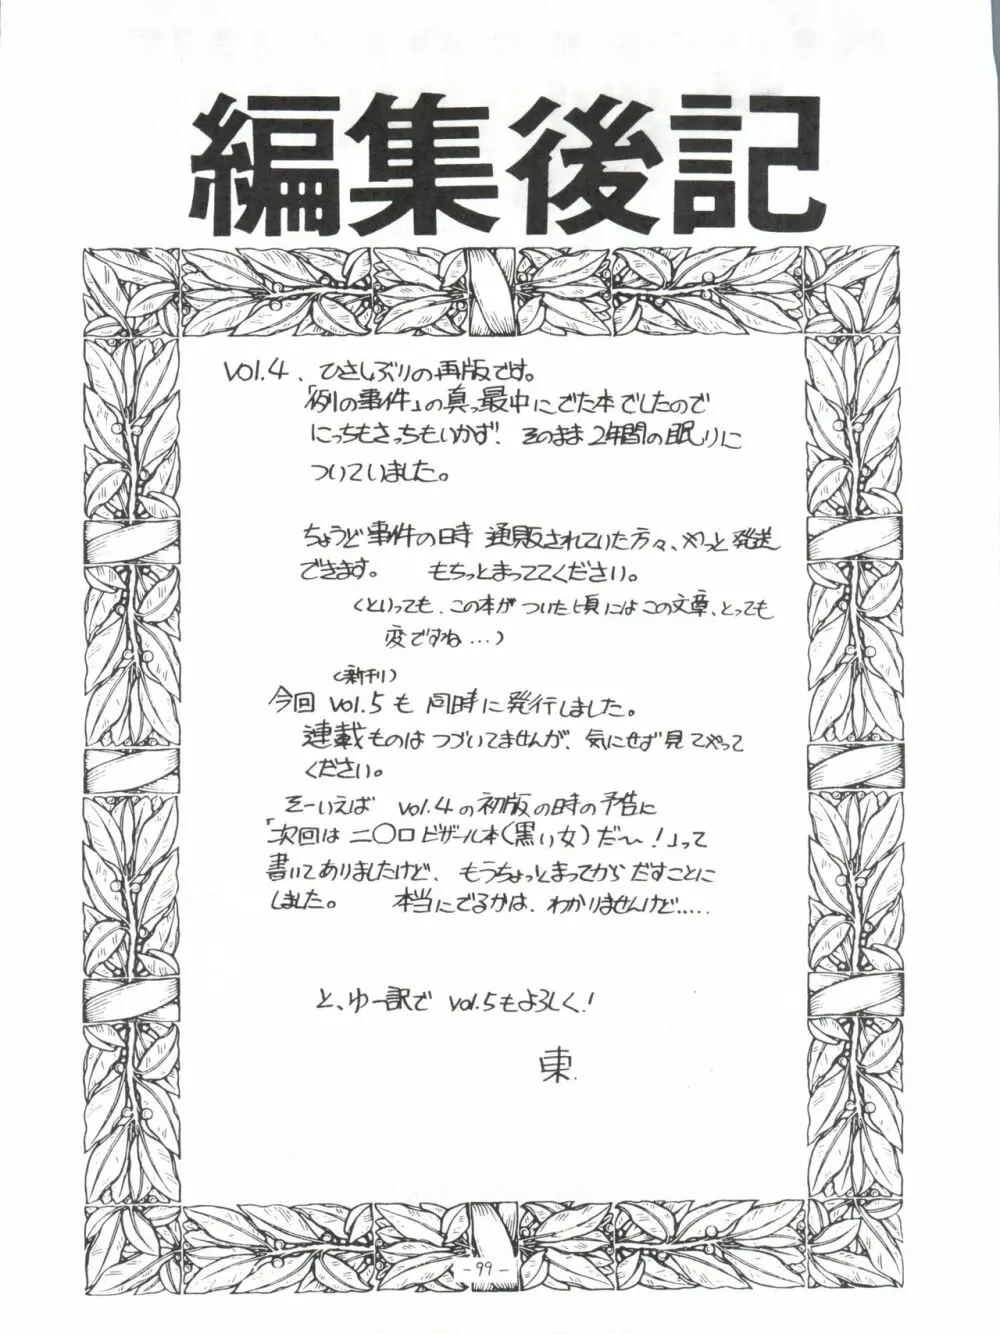 編集後記
vol.4、ひさしぶりの再版です。
「例の事件」の真っ最中にでた本でしたので
にっちもさっちもいかず、そのまま2年間の眠りに
ついていました。
ちょうど事件の日時 通販されていた方々、やっと発送
できます。 もちっとまっててください。
(といっても、この本がついた頃にはこの文章、とっても
変ですね…)
(新刊)
今回 vol.5も 同時に発行しました。
連載ものはつづいてませんが、気にせず見てやって
ください。
そーいえば vol.4の初版の時の予告に
「次回は二〇ロビザール本(黒い女)だ〜!」って
書いてありましたけど、もうちょっとまってから だすことに
しました。 本当にでるかは、わかりませんけど.....
と、ゆー訳で vol.5もよろしく!
東.
- 99 -